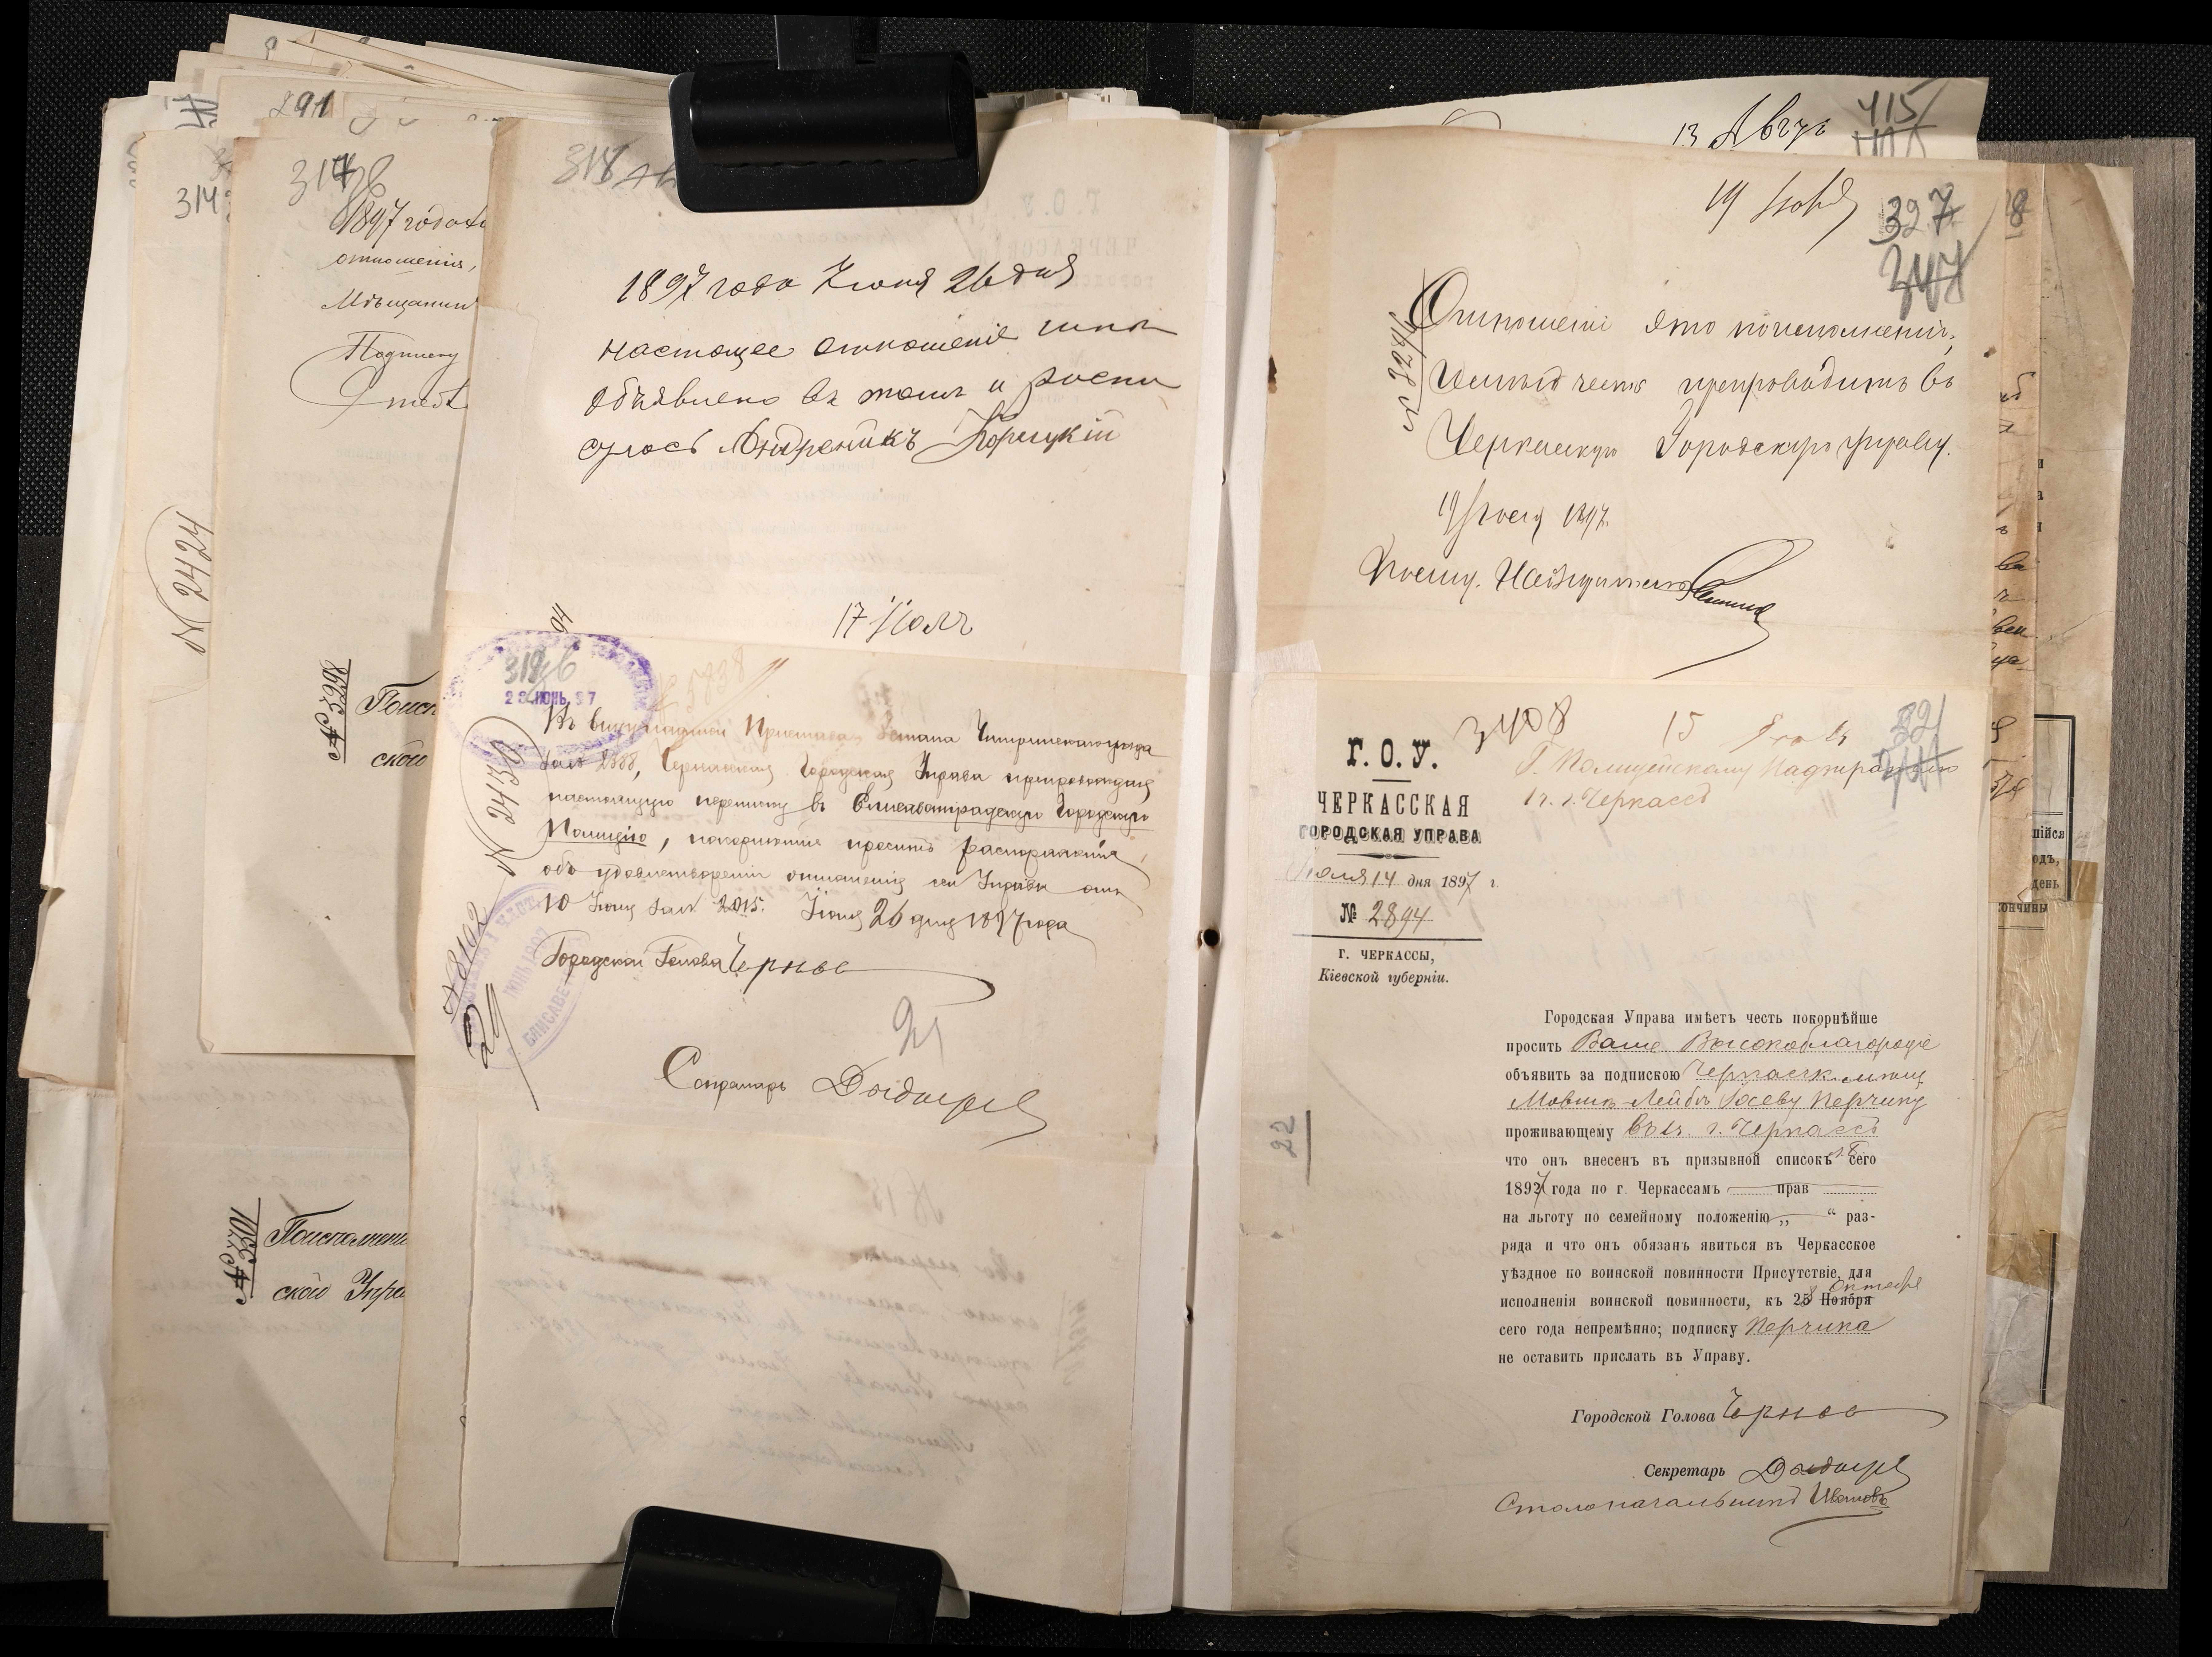 291
314
№ 2424
317 об
1897 года
отношенія,
Мѣщанин
Подписку
№ 3298
Поисп
ской
№ 3301
Поисполнени
ской Упра
318
1897 года Іюня 26 дня
настоящее отношеніе мнѣ
объявлено въ томъ и роспи
суюсь Андроникъ Корецкій
17 Іюля
94
319 об
28 ІЮНЬ 97
№ 5838
Въ виду надписи Пристава стана Чигиринскаго уѣзда
за № 2388, Черкасская Городская Управа препровождая
настоящую переписку въ Елисаветградскую Городскую
Полицію, покорнѣйше проситъ распоряженія
объ удовлетвореніи отношенія сей Управы отъ
10 Іюня за № 2015. Іюня 26 дня 1897 года
№ 2430
Городской Голова Чернов
№ 8102
29
Секретарь
13 Авгус
415
19 Іюля
327
347
№ 3284
Отношеніе это по исполненіи,
имѣетъ честь препроводить въ
Черкасскую Городскую Управу.
19 Іюля 1897.
Полиц. Надзиратель
3408
15 Іюля
321
Г. О. У.
Г. Полицейскому Надзирателю
ЧЕРКАССКАЯ
въ г. Черкассѣ
ГОРОДСКАЯ УПРАВА
Іюля 14 дня 1897 г.
№ 2894
Г. ЧЕРКАССЫ,
Кіевской губерніи.
22
Городская Управа имѣетъ честь покорнѣйше
просить Ваше Высокоблагородіе
объявить за подпискою Черкасск. мѣщ
Мовшѣ-Лейбѣ Іосеву Перчику
проживающему въ г. Черкассѣ
что онъ внесенъ въ призывной списокъ сего
1897 года по г. Черкассамъ прав
на льготу по семейному положенію „ “ раз-
ряда и что онъ обязанъ явиться въ Черкасское
уѣздное по воинской повинности Присутствіе, для
Октября
исполненія воинской повинности, къ 28 Ноября
сего года непремѣнно; подписку Перчика
не оставить прислать въ Управу.
Городской Голова Чернов
Секретарь
Столоначальникъ Ивановъ